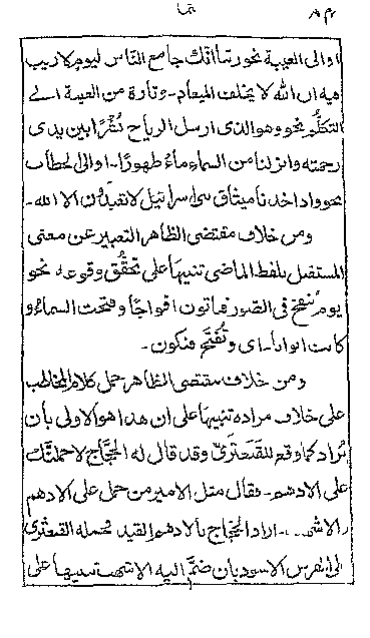 او الى الغيبة نحو ربنا انك جامع الناس ليوم لا ريب
فيه ان الله لا يخلف الميعاد۔ وتارة من الغيبة الے
التكلم نحو وهو الذى ارسل الرياح نُشُرًا بين يدى
رحمته وانزلنا من السماء ماءً طهورًا۔ او الى الخطاب
نحو واذ اخذنا ميثاق بنى اسرائيل لا تعبدون الا الله۔
ومن خلاف مقتضى الظاهر التعبير عن معنى
المستقبل بلفظ الماضى تنبيهًا على تحقُّق وقوعه نحو
يوم يُنفخ فى الصور فتاتون افواجًا وفتحت السماءُ و
كانت ابوابا۔ اى وتُفتح فتكون۔
ومن خلاف مقتضى الظاهر حمل كلام المخاطب
على خلاف مراده تنبيهًا على ان هذا هو الاولى بان
يُراد كما وقع للقَبَعثَرىّ وقد قال له الحجّاج لاحملنّك
على الادهم۔ فقال مثل الامير من حمل على الادهم
والاشهب۔ اراد الحجّاج بالادهم القيد فحمله القبعثرى
الى الفرس الاسود بان ضمَّ اليه الاشهب تنبيهًا على